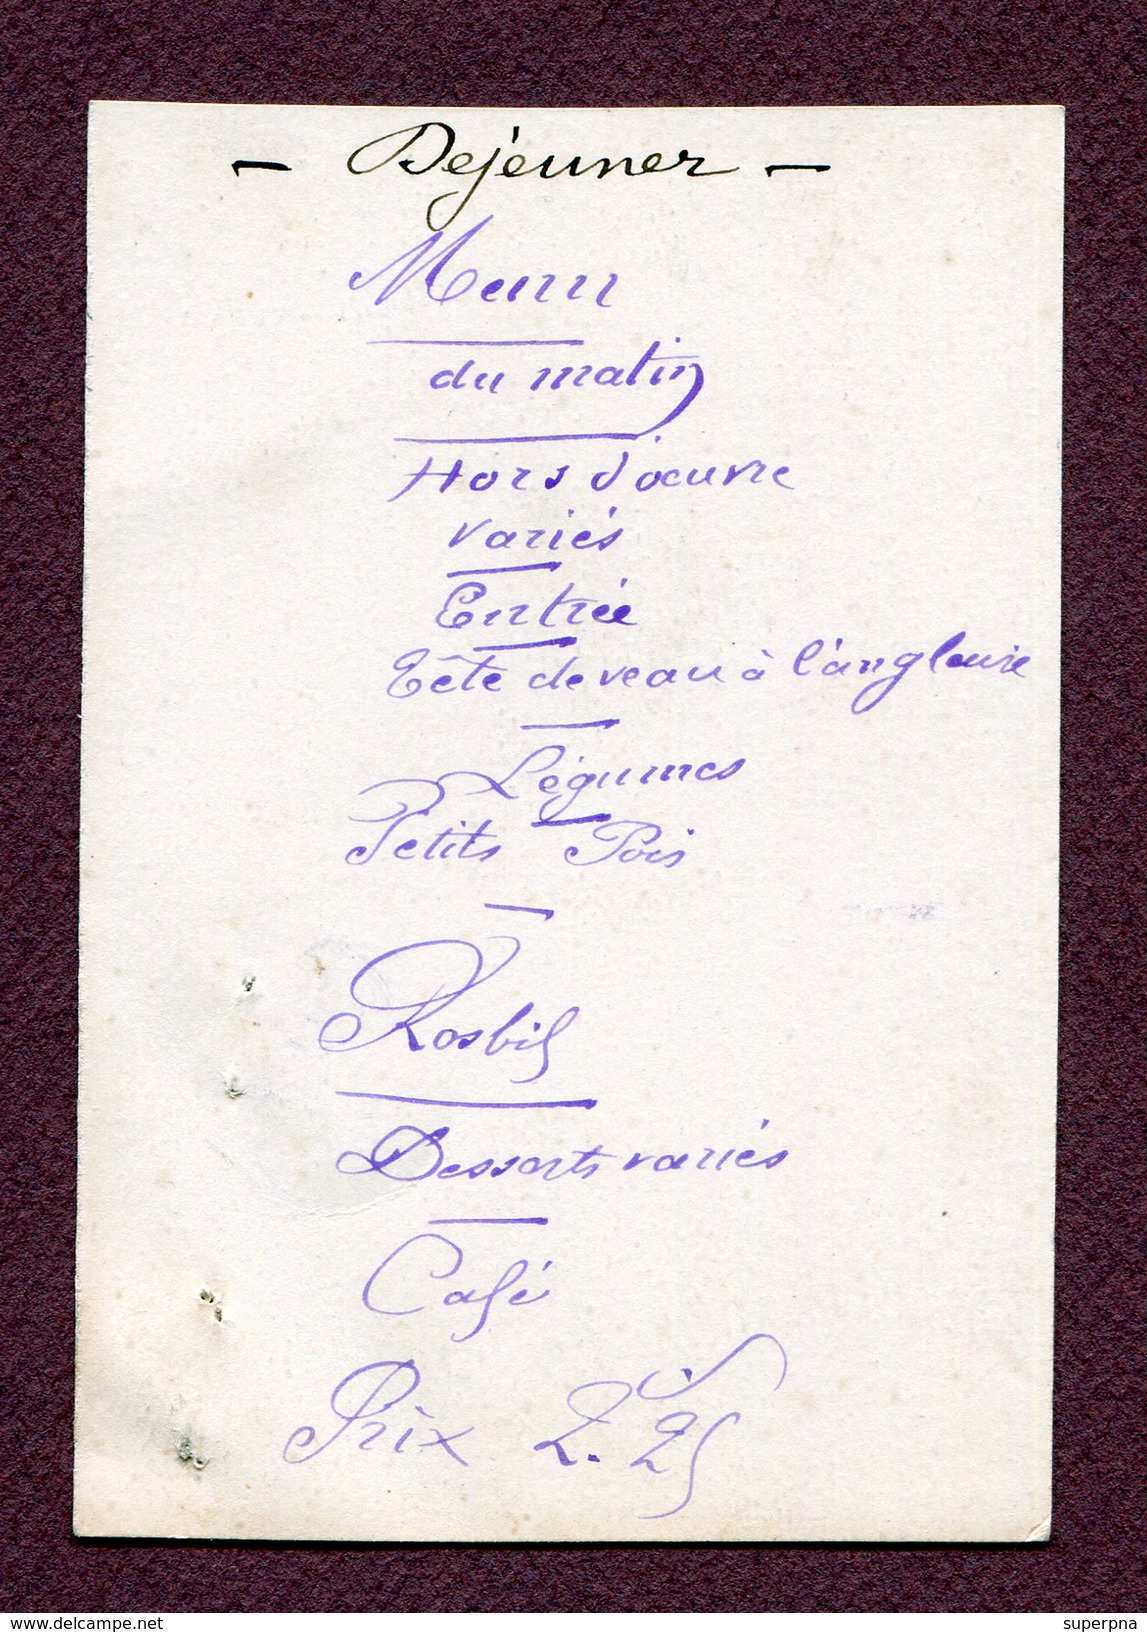 - Dejeuner -
Menu
du matin
Hors d'oeuvre
variés
Entrée
Tête de veau à l'anglaise
Légumes
Petits Pois
Rosbif
Desserts variés
Café
Prix 2.25
delcampe.net
superpna